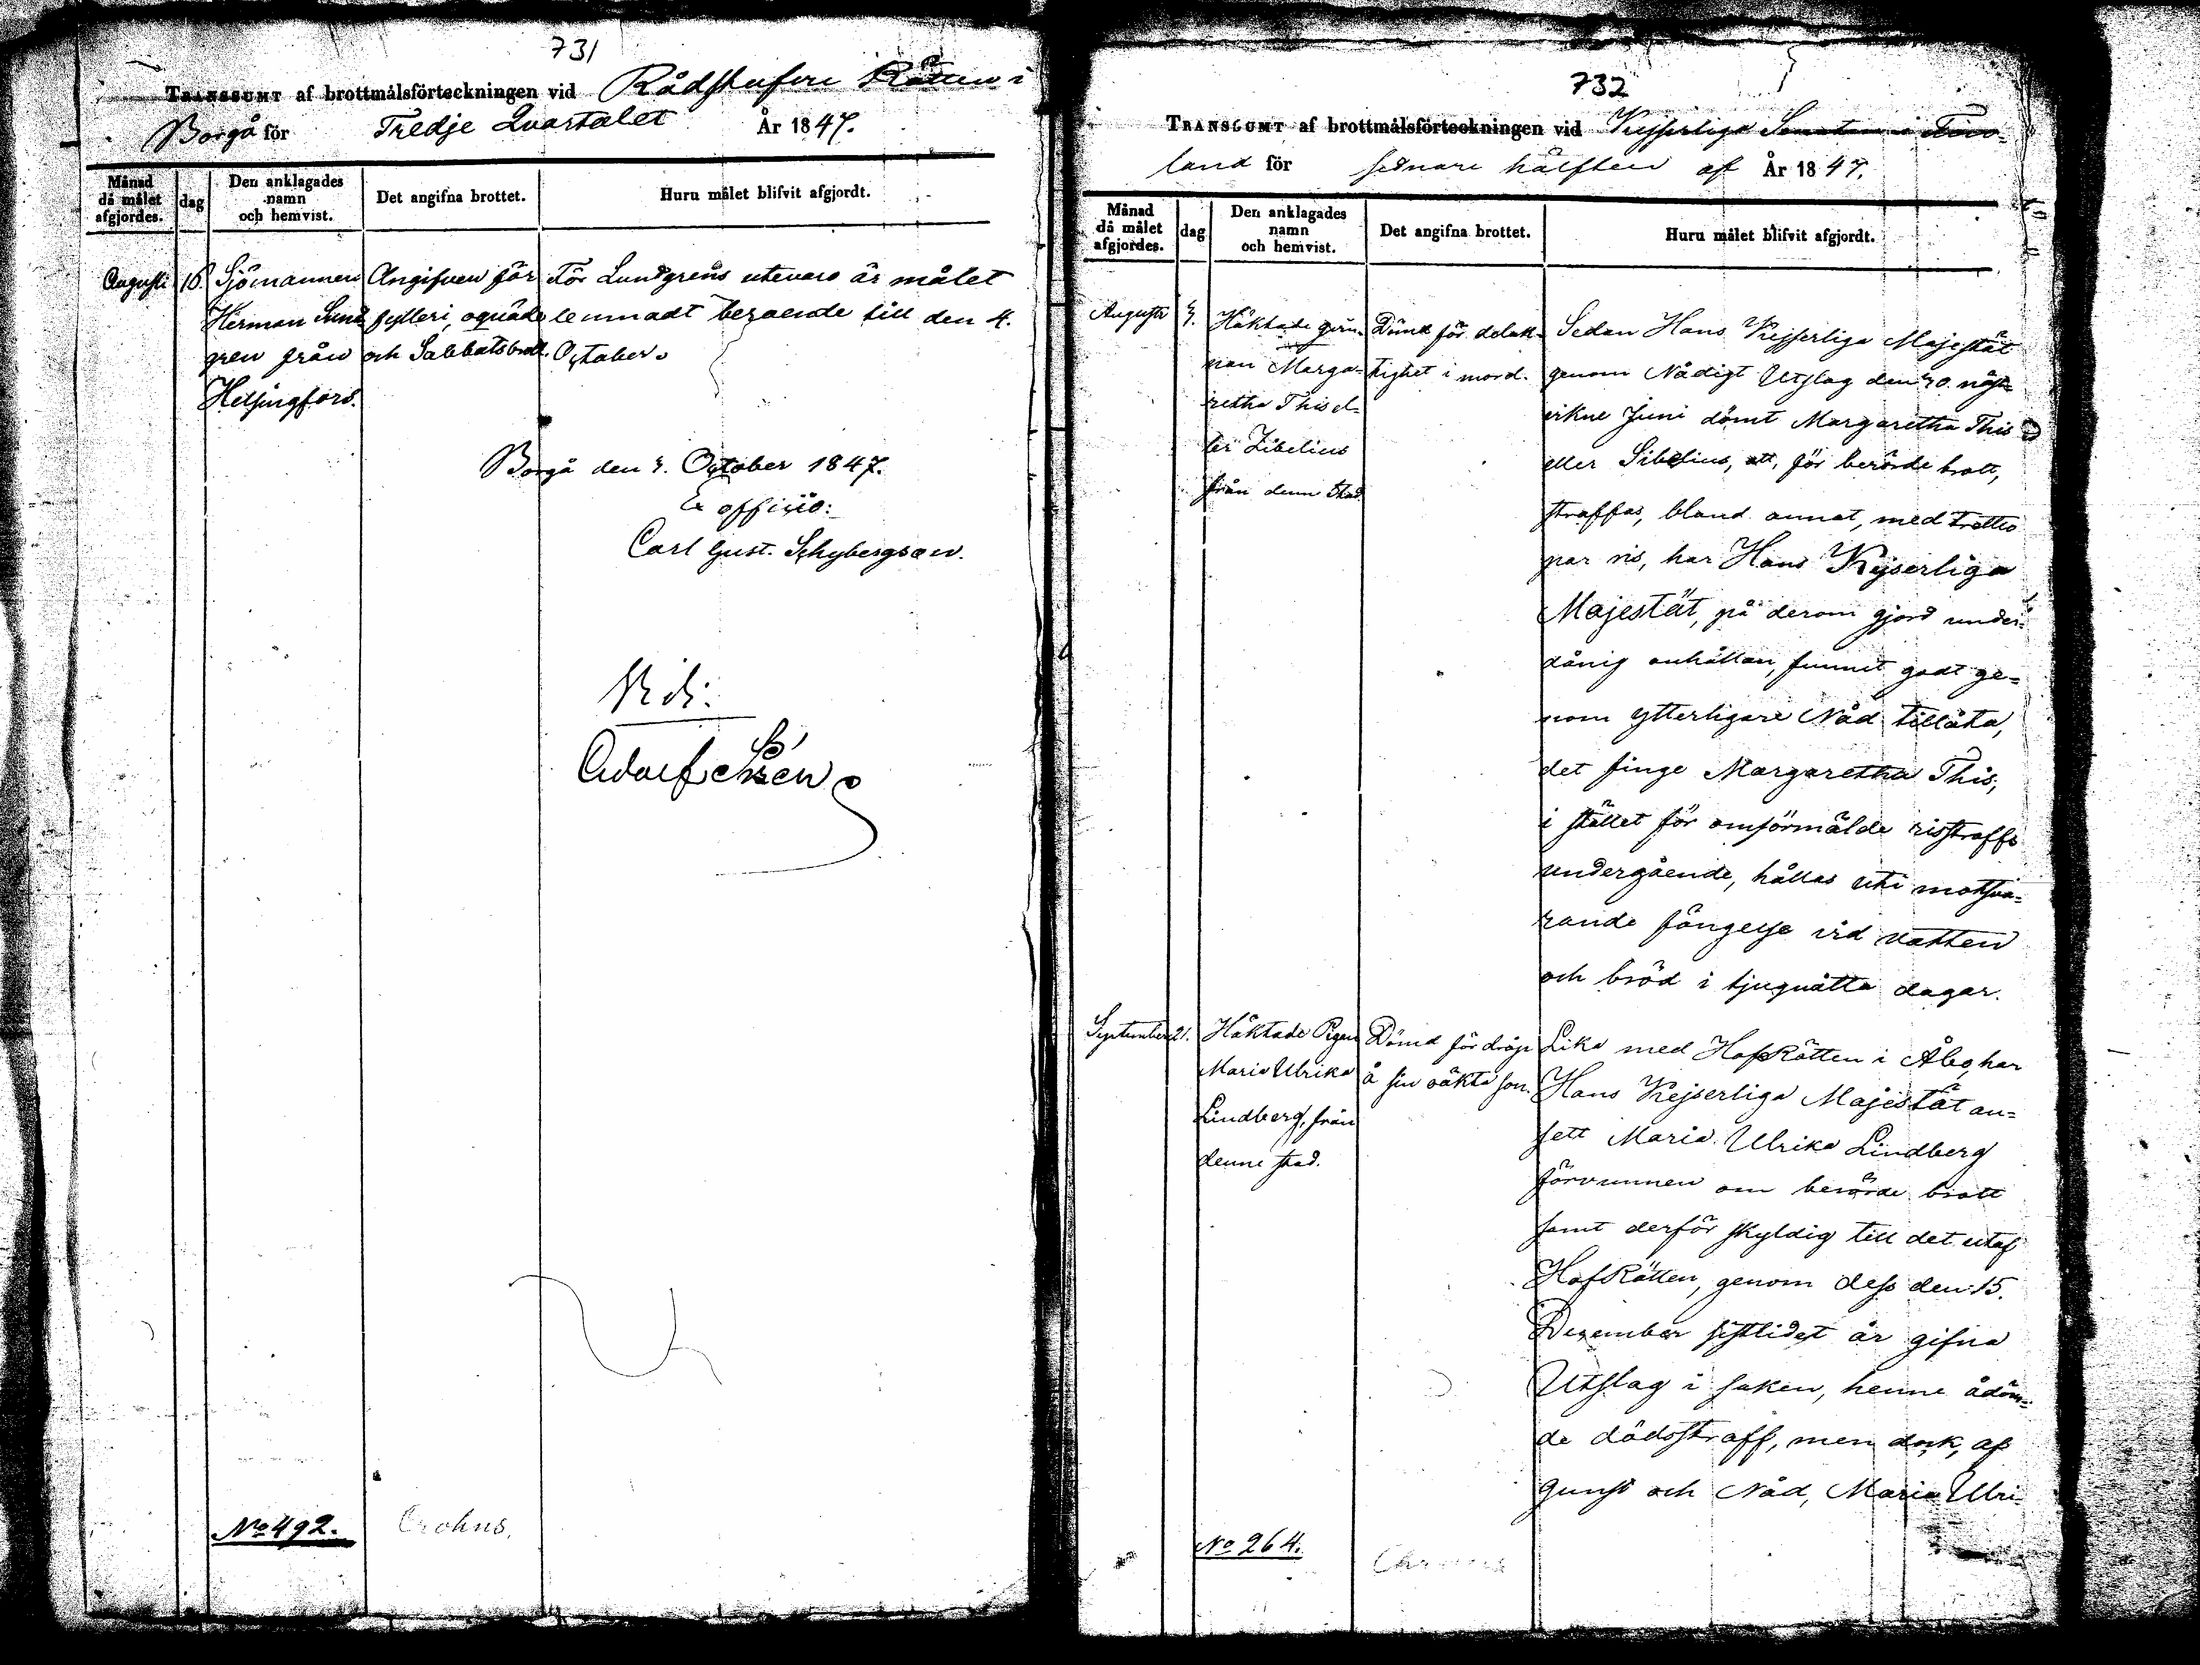 731
TRANSSUMT af brottmålsförteckningen vid Rådstufvu Rätten i
Borgå för Tredje Quartalet År 1847.
Månad då målet afgjordes.
dag
Den anklagades namn och hemvist.
Det angifna brottet.
Huru målet blifvit afgjordt.
Augusti 16. Sjömannen Angifven för För Lundgrens utevaro är målet
Herman Lund fylleri, oqväde lemnadt beroende till den 4.
gren från och Sabbatsbrott. October.
Helsingfors.
Borgå den 4. October 1847.
Ex officio:
Carl Gust. Schybergson.
No 492.
Crohns.
732
TRANSSUMT af brottmålsförteckningen vid Kejserliga Senaten i Finn-
land för sednare hälften af År 1847.
Månad då målet afgjordes.
dag
Den anklagades namn och hemvist.
Det angifna brottet.
Huru målet blifvit afgjordt.
Augusti
Häktade qvin-
nan Marga-
retha This el-
ler Zibelius
från denna stad
Dömd för delak-
tighet i mord.
Sedan Hans Kejserliga Majestät
genom Nådigt Utslag den 30. näst-
vikne Juni dömt Margaretha This
eller Sibelius, att, för berörde brott,
straffas, bland annat, med trettio
par ris, har Hans Kejserliga
Majestät, på derom gjord under-
dånig anhållan, funnit godt ge-
nom ytterligare Nåd tillåta,
det finge Margaretha This,
i stället för omförmälde risstraffs
undergående, hållas uti motsva-
rande fängelse vid vatten
och bröd i tjuguåtta dagar.
September 21.
Häktade Pigan
Maria Ulrika
Lindberg, från
denne stad.
Dömd för dråp
å sin oäkta son.
Lika med HofRätten i Åbo, har
Hans Kejserliga Majestät an-
sett Maria Ulrika Lindberg
förvunnen om berörde brott
samt derför skyldig till det utaf
HofRätten, genom dess den 15.
December sistlidet år gifna
Utslag i saken, henne ådöm-
de dödsstraff, men dock, af
gunst och Nåd, Maria Ulri-
No 264.